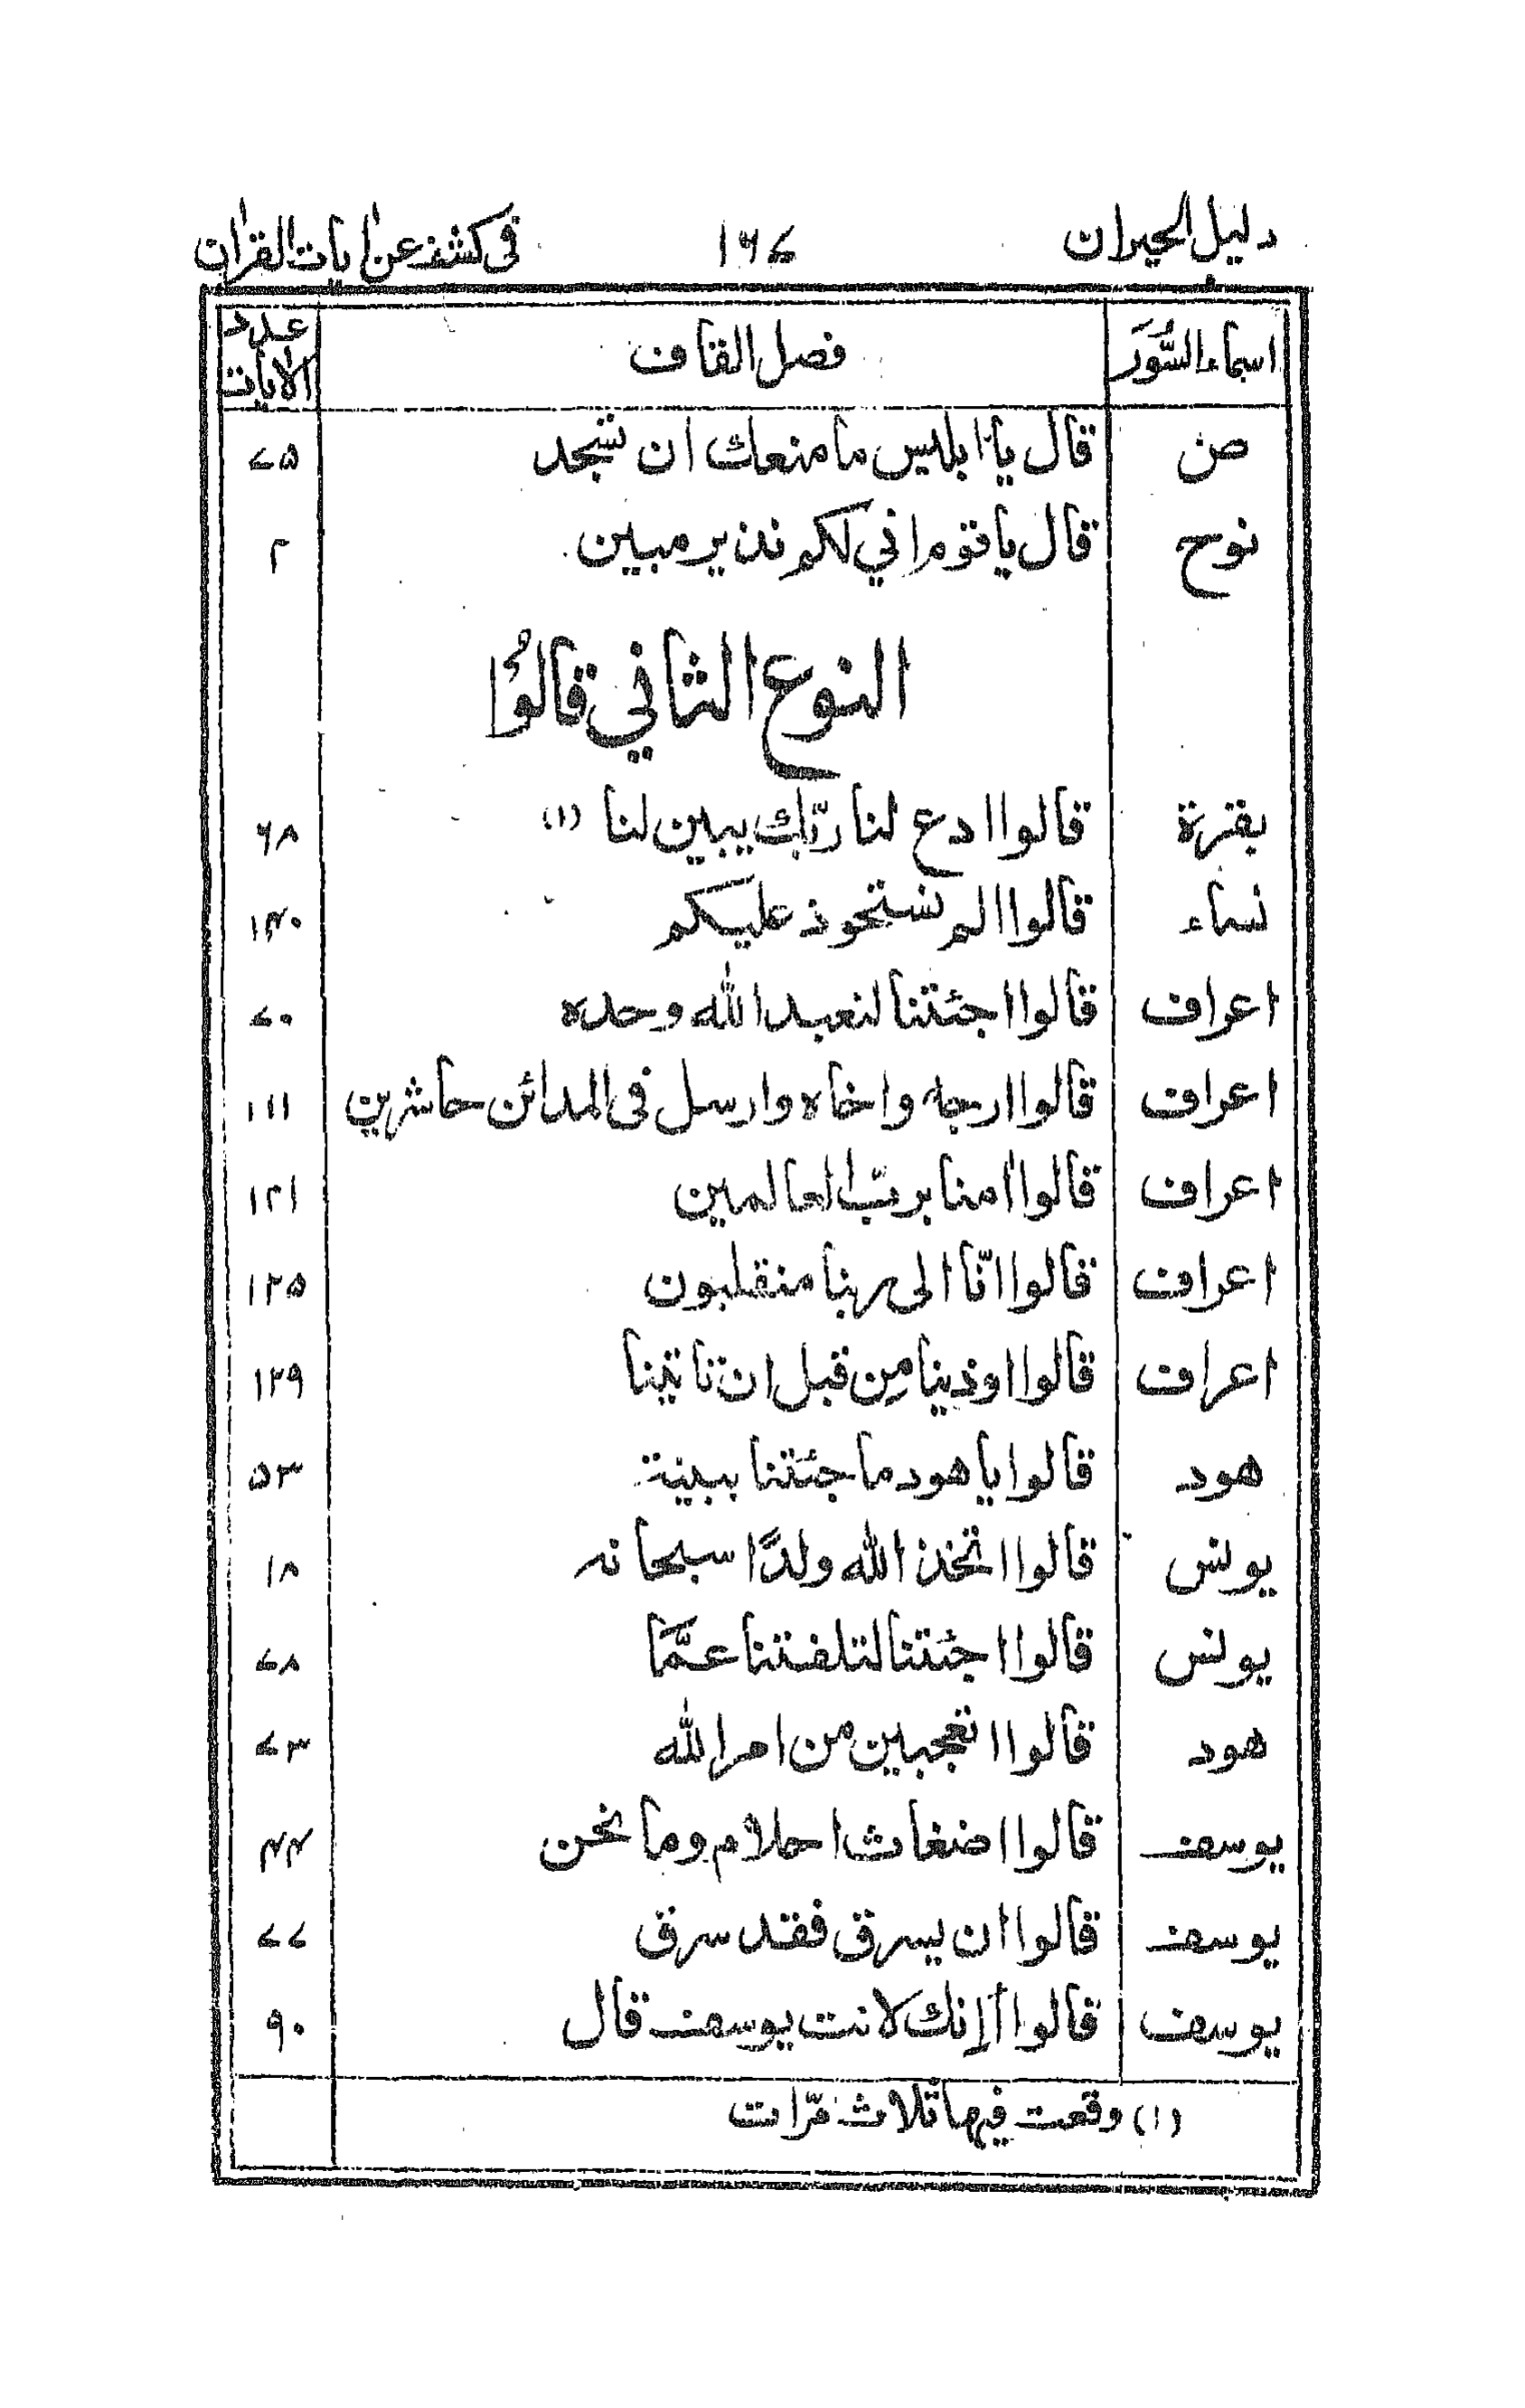 دليل الحيران ١٦٧ في كشف عن اٰيات القراٰن
اسماء السُّوَر فصل القاف عدد الاٰيات
صٓ قال يا ابليس ما منعك ان تسجد ٧٥
نوح قال يا قوم اني لكم نذير مبين ٢
النوع الثاني قالُوْا
بقرة قالوا ادع لنا ربّك يبين لنا (١) ٦٨
نساء قالوا الم نستحوذ عليكم ١٤٠
اعراف قالوا اجئتنا لنعبد الله وحده ٧٠
اعراف قالوا ارجه واخاه وارسل فى المدائن حاشرين ١١١
اعراف قالوا اٰمنا بربّ العالمين ١٢١
اعراف قالوا انّا الى ربنا منقلبون ١٢٥
اعراف قالوا اوذينا مِن قبل ان تاتينا ١٢٩
هود قالوا يا هود ما جئتنا ببينة ٥٣
يونس قالوا اتخذ الله ولدًا سبحانه ١٨
يونس قالوا اجئتنا لتلفتنا عمَّا ٧٨
هود قالوا اتعجبين من امر الله ٧٣
يوسف قالوا اضغاث احلام وما نحن ٤٤
يوسف قالوا ان يسرق فقد سرق ٧٧
يوسف قالوا أإنك لانت يوسف قال ٩٠
(١) وقعت فيها ثلاث مرّات